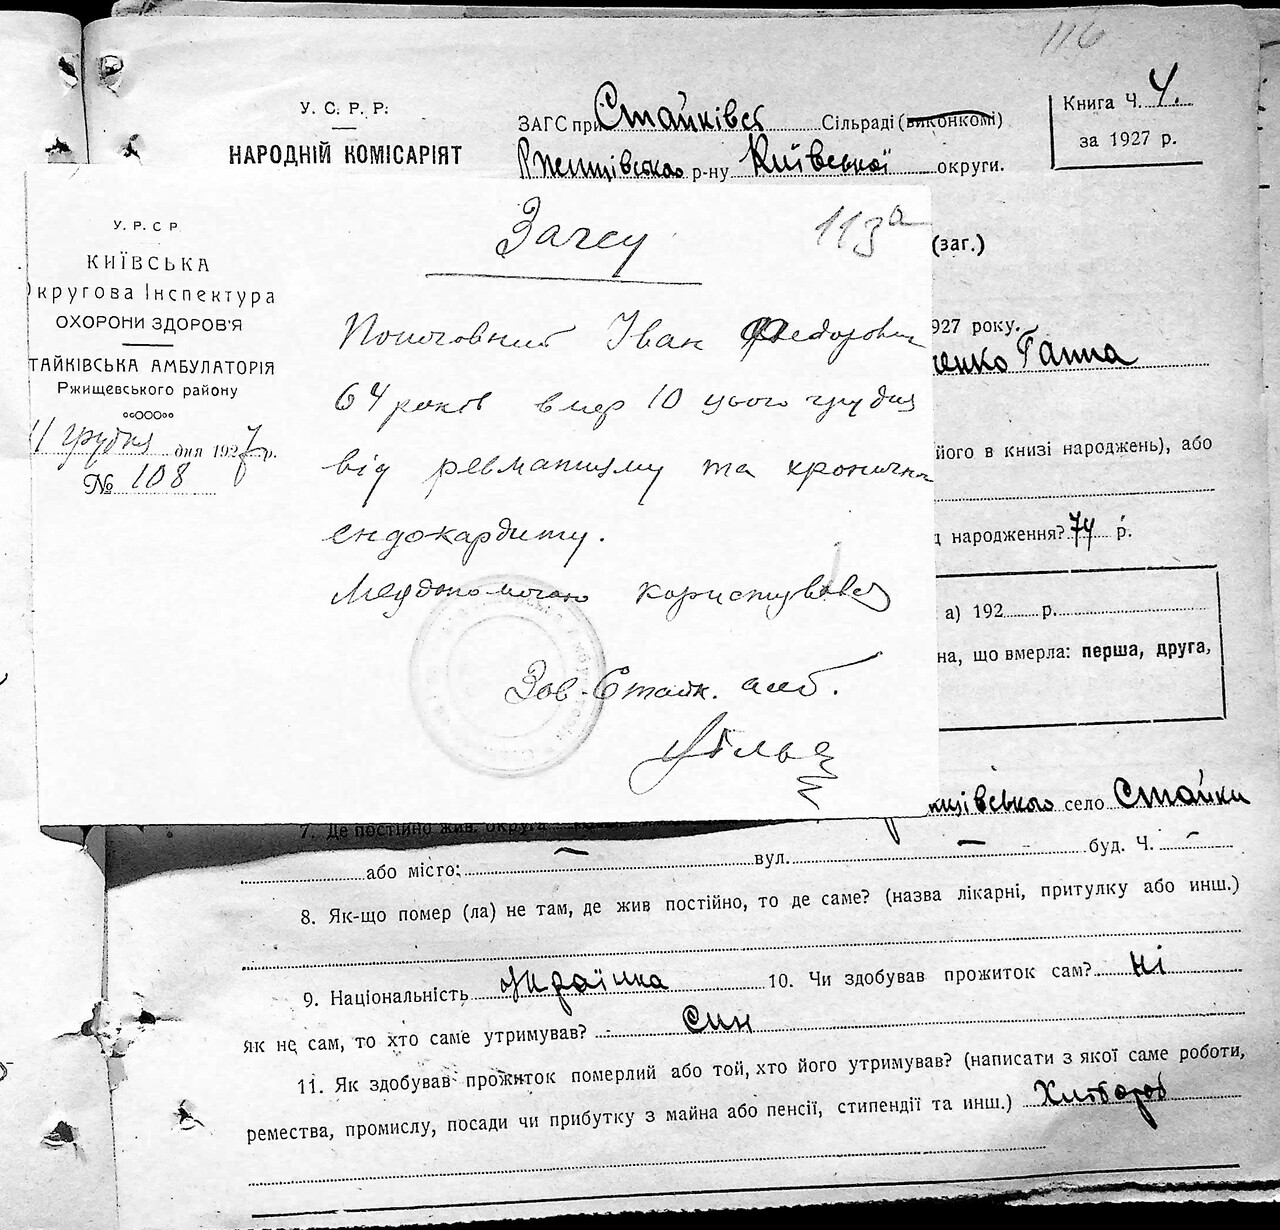 116
У. С. Р. Р.
НАРОДНІЙ КОМІСАРІЯТ
ЗАГС при Стайківській Сільраді (виконкомі)
Ржищівського р-ну Київської округи.
Книга Ч. 4.
за 1927 р.
У. Р. С. Р.
КИЇВСЬКА
Округова Інспектура
ОХОРОНИ ЗДОРОВ'Я
ТАЙКІВСЬКА АМБУЛАТОРІЯ
Ржищевського району
11 грудня дня 1927 р.
№ 108
113а
Загсу
Іван Федорович
64 років вмер 10 цього грудня
від ревматизму та хронічн
ендокардиту.
Меддопомогою користувався
Зав. Стайк. амб.
(заг.)
927 року.
енко Ганна
його в книзі народжень), або
народження? 74 р.
а) 192 р.
на, що вмерла: перша, друга,
7. Де постійно жив. округа
щівського село Стайки
або місто: — вул. — буд. Ч. —
8. Як-що помер (ла) не там, де жив постійно, то де саме? (назва лікарні, притулку або инш.)
9. Національність Українка 10. Чи здобував прожиток сам? ні
Як не сам, то хто саме утримував? син
11. Як здобував прожиток померлий або той, хто його утримував? (написати з якої саме роботи,
ремества, промислу, посади чи прибутку з майна або пенсії, стипендії та инш.) Хлібороб